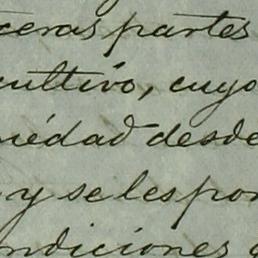 ceras partes
cultivo, cuyo
piedad desde
y se les pon
ondiciones